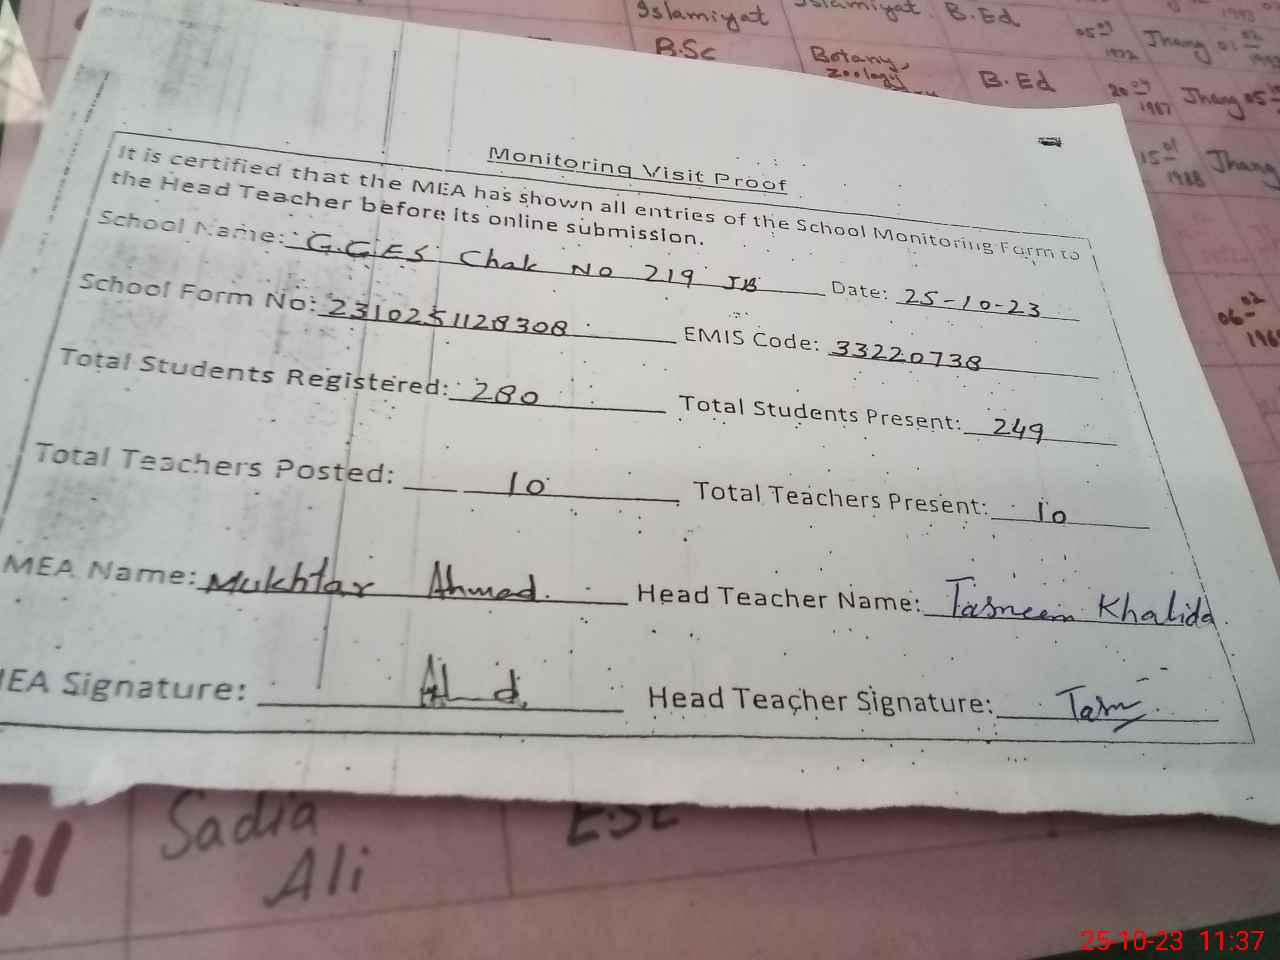 Islamiyat Islamiyat B.Ed 05 1972 Jhang 01 02
B.Sc Botany, B.Ed 20 1967 Jhang 05
Zoology
15 01 1988 Jhang
06 02
Monitoring Visit Proof
It is certified that the MEA has shown all entries of the School Monitoring Form to
the Head Teacher before its online submission.
School Name: G.GES Chak No 219 JB Date: 25-10-23
School Form No: 2310251128308 EMIS Code: 33220738
Total Students Registered: 280 Total Students Present: 249
Total Teachers Posted: 10 Total Teachers Present: 10
MEA Name: Mukhtar Ahmad. Head Teacher Name: Tasneem Khalida
EA Signature: Head Teacher Signature:
11 Sadia ESE
Ali
25-10-23 11:37